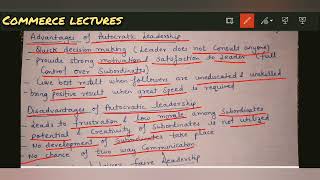 COMMERCE LECTURES
Advantages of Autocratic Leadership
- Quick decision making (Leader does not Consult anyone)
- provide strong motivation & Satisfaction to Leader (full
Control over Subordinates)
- Give best result when followers are uneducated & unskilled
- bring positive result when great Speed is required
Disadvantages of Autocratic leadership
- Leads to frustration & low morale among Subordinates
- potential & Creativity of Subordinates is not utilized
- No development of Subordinates take place
- No chance of two way Communication
Laissez faire Leadership